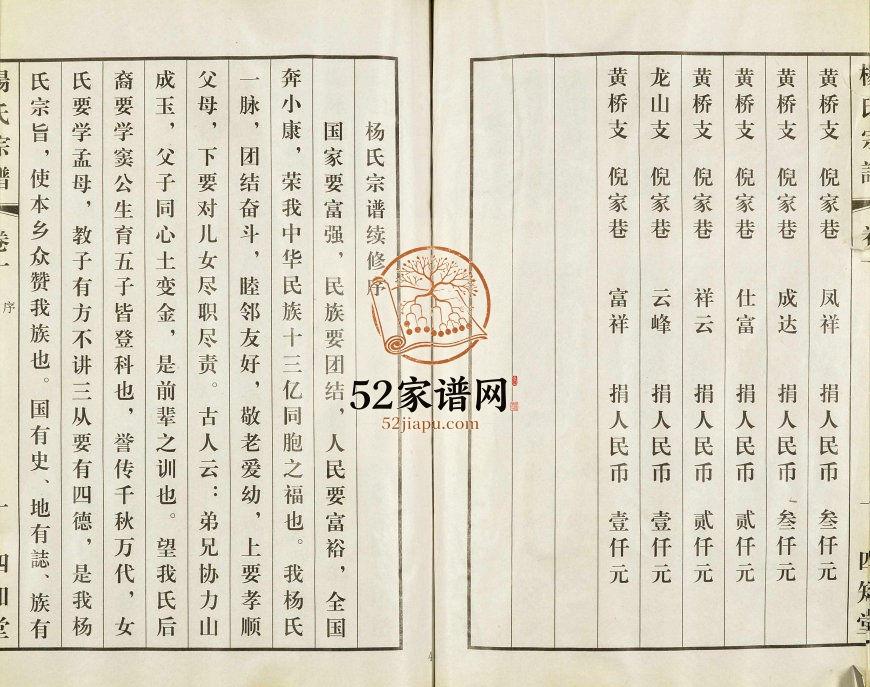 杨氏宗谱
黄桥支 倪家巷 凤祥 捐人民币 叁仟元
黄桥支 倪家巷 成达 捐人民币 叁仟元
黄桥支 倪家巷 仕富 捐人民币 贰仟元
黄桥支 倪家巷 祥云 捐人民币 贰仟元
龙山支 倪家巷 云峰 捐人民币 壹仟元
黄桥支 倪家巷 富祥 捐人民币 壹仟元
杨氏宗谱续修序
国家要富强，民族要团结，人民要富裕，全国
奔小康，荣我中华民族十三亿同胞之福也。我杨氏
一脉，团结奋斗，睦邻友好，敬老爱幼，上要孝顺
父母，下要对儿女尽职尽责。古人云：弟兄协力山
成玉，父子同心土变金，是前辈之训也。望我氏后
裔要学窦公生育五子皆登科也，誉传千秋万代，女
氏要学孟母，教子有方不讲三从要有四德，是我杨
氏宗旨，使本乡众赞我族也。国有史、地有誌、族有
楊氏宗譜 卷一 序 一 四知堂
52家谱网
52jiapu.com